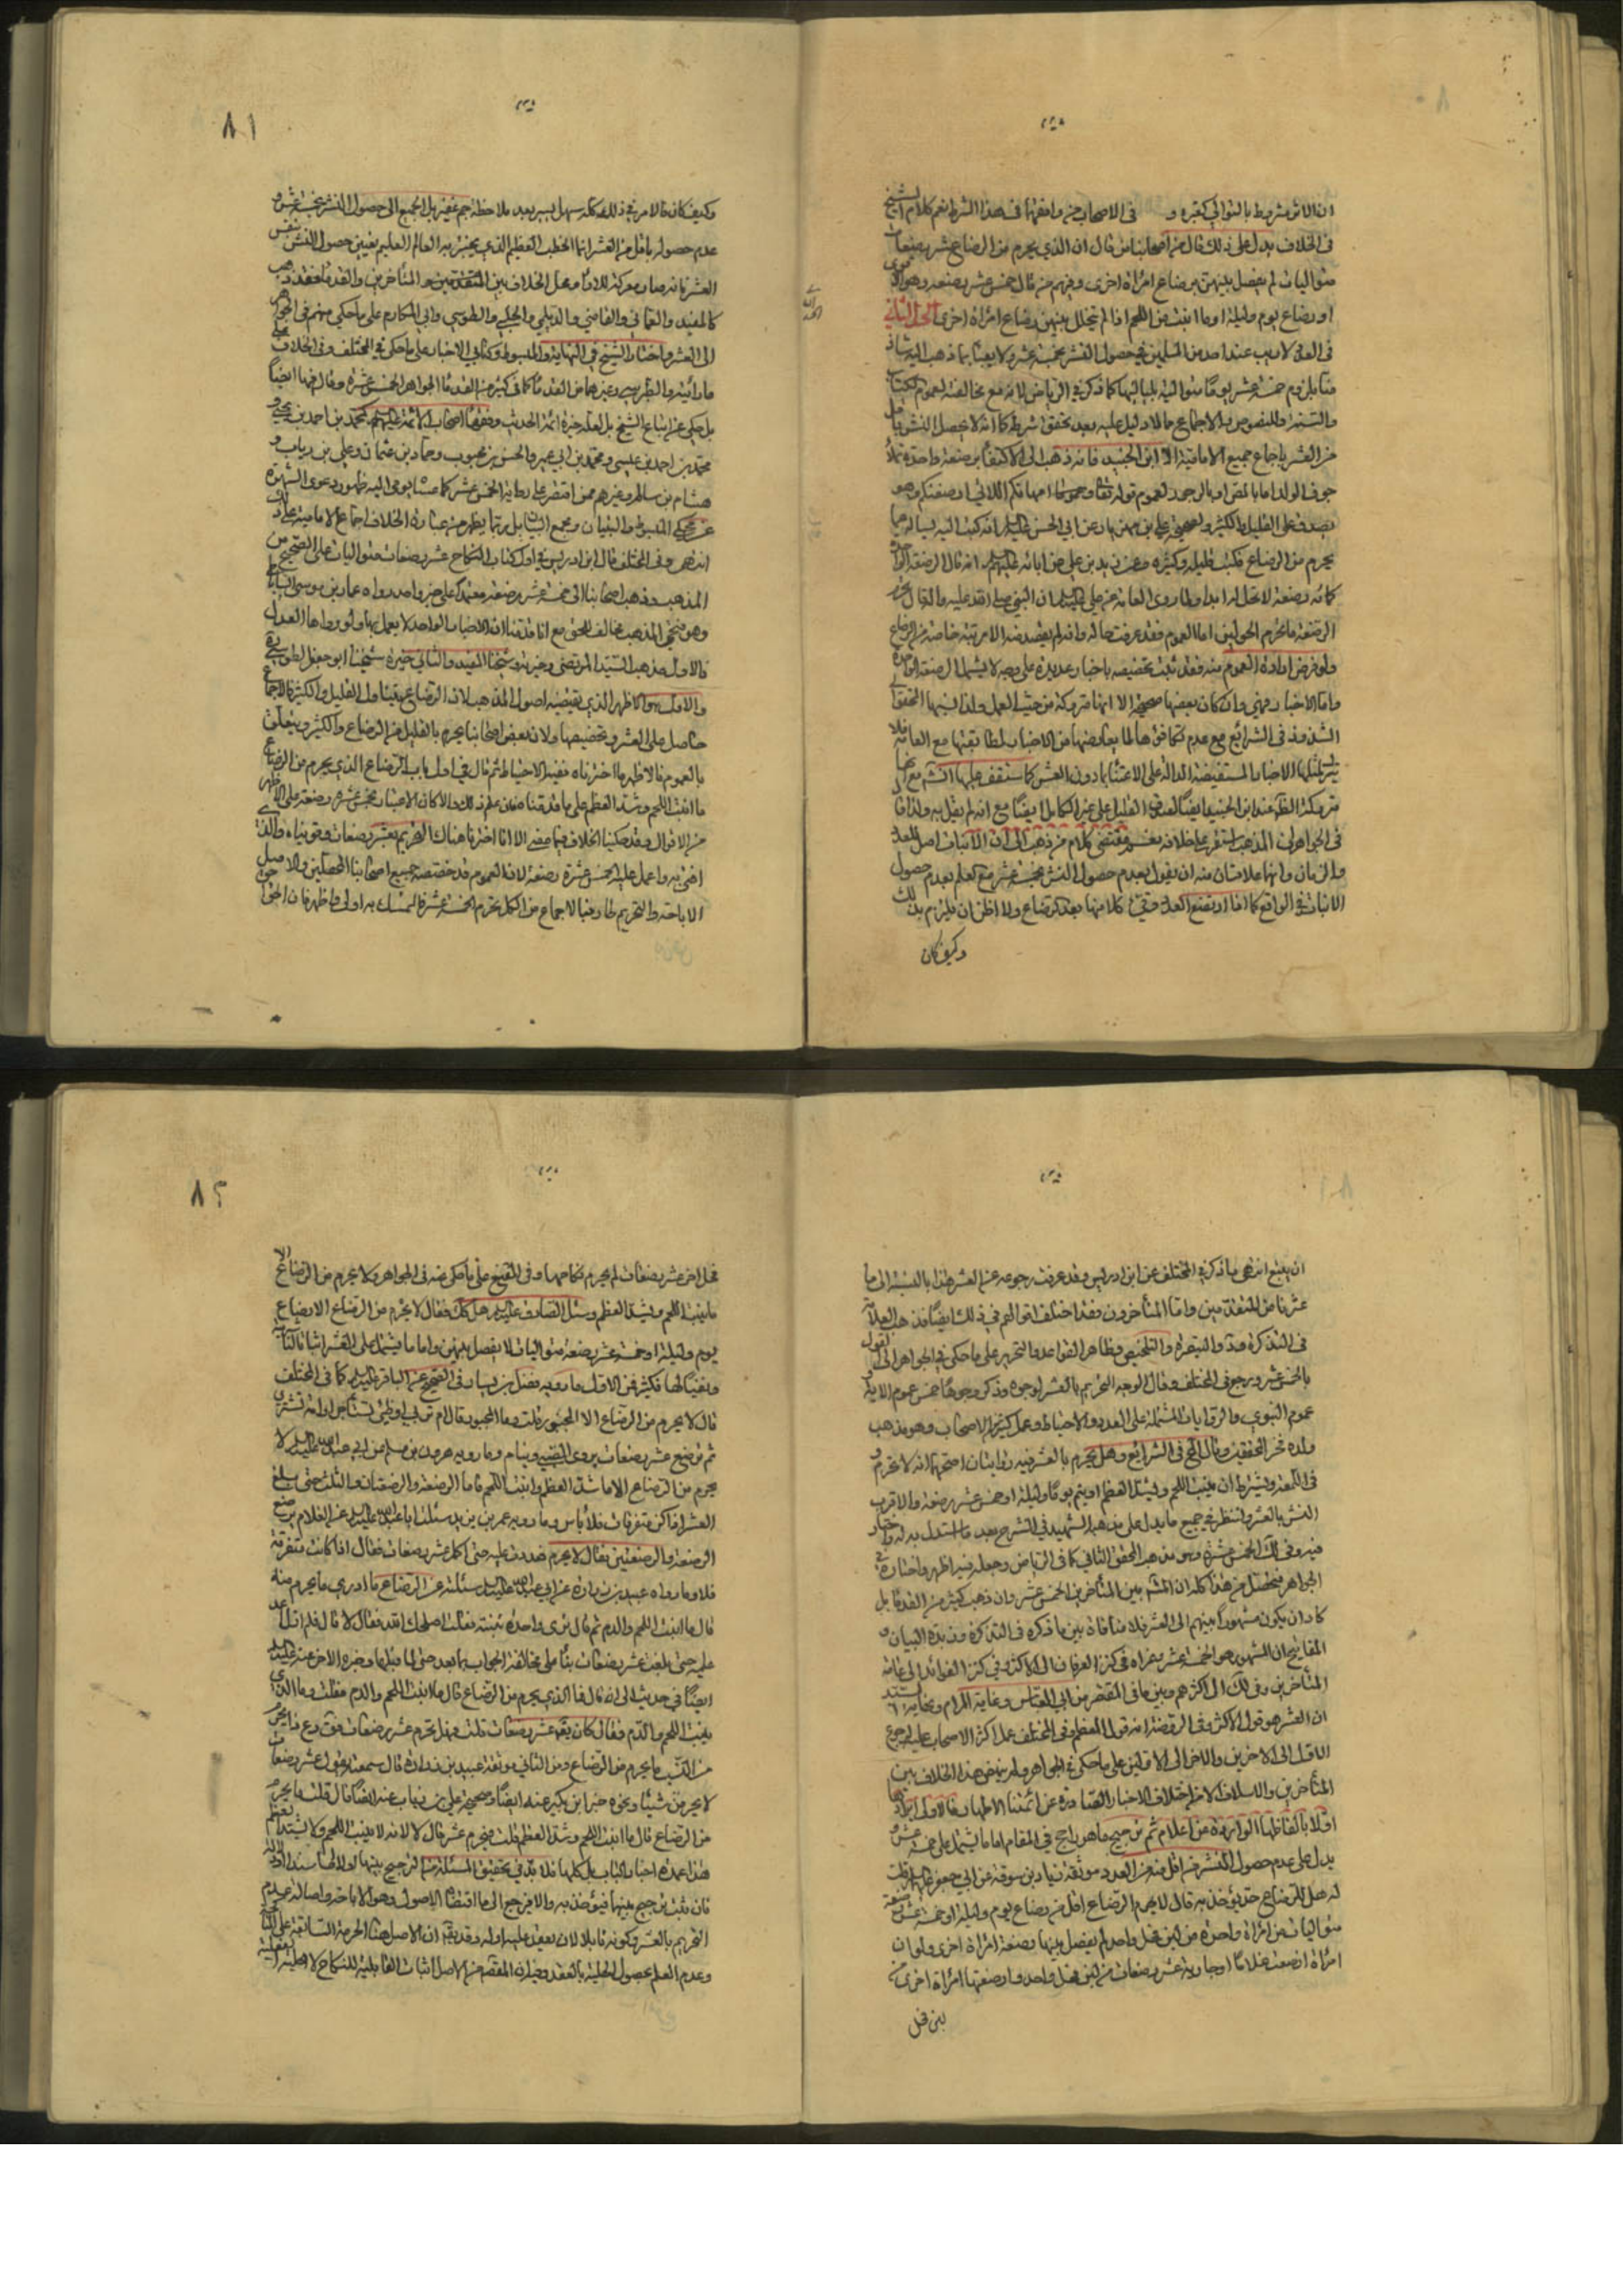 ان الاثر مشروط بالتوالي كغيره و في الاصحاب من وافقهما في هذا الشرط نعم كلام الشيخ
في الخلاف يدل على ذلك قال من اصحابنا من قال ان الذي يحرم من الرضاع عشر رضعات
متواليات لم يفصل بينهن برضاع امراة اخرى ومنهم من قال خمس عشر رضعة وهو الاقوى
او رضاع يوم وليلة او ما انبت من اللحم اذا لم يتخلل بينهن رضاع امراة اخرى المحل الثاني
في العدد لاريب عند احد من المسلمين في حصول النشر بخمسة عشر ولا يعبأ بما ذهب اليه شاذ
منا بلزوم خمسة عشر يومًا متوالية بلياليها كما ذكره في الرياض لانه مع مخالفته لعموم الكتاب
والسنة والنصوص والاجماع مما لا دليل عليه بعد تحقق شرطه كما انه لا يحصل النشر باقل
من العشر باجماع جميع الامامية الا ابن الجنيد فانه ذهب الى الاكتفاء برضعة واحدة تملأ
جوف الولد اما بالمص او بالوجور لعموم قوله تعالى وامهاتكم اللاتي ارضعنكم وهو
يصدق على القليل والكثير ولصحيحة علي بن مهزيار عن ابي الحسن عليه السلم انه كتب اليه يساله عما
يحرم من الرضاع فكتب قليله وكثيره وعن زيد بن علي عن ابائه عليهم السلم انه قال الرضعة الواحدة
كمائة رضعة لا تحل له ابدا ولما روى العامة عن علي عليه السلم ان النبي صلى الله عليه واله قال
الرضعة ما تحرم الحولين اما العموم فقد عرفت حاله وانه لم يقصد منه الا مرتبة خاصة من الرضاع
ولو فرض ارادة العموم منه فقد ثبت تخصيصه باخبار عديدة على وجه لا يشمل الرضعة الواحدة
واما الاخبار فهي وان كان بعضها صحيحة الا انها متروكة من حيث العمل ولذا نسبها المحقق الى
الشذوذ في الشرائع مع عدم تكافؤها لما يعارضها من الاخبار لمطابقتها مع العامة فلا
يترك لمثلها الاخبار المستفيضة الدالة على الاعتناء بما دون العشر كما ستقف عليها انشم مع انها
في الجواهر ان المذهب استقر على خلافه
والزمان وانهما علامتان منه ان يقول بعدم حصول النشر بخمسة عشر مع العلم بعدم حصول
الانبات في الواقع كما اذا ارتضع العدد وقيء كلا منها بعد كل رضاع ولا اظن ان يلتزم بذلك
وكيف كان
٨١
وكيف كان فالامر في ذلك كله سهل يسير بعد ملاحظة جم غفير بل الجميع الى حصول النشر بخمسة عشر و
عدم حصوله باقل من العشر انما الخطب العظيم الذي يختبر به العالم العليم تعيين حصول النشر بنفس
العشر فانه صار معركة للاراء ومحل الخلاف بين المتقدمين والمتأخرين والقدماء فقد ذهب
كالمفيد والعماني والقاضي والديلمي والحلبي والطوسي وابي المكارم على ما حكي عنهم في الجواهر
الى العشر واختار الشيخ في النهاية والمبسوط وكتابي الاخبار على ما حكي في المختلف وفي الخلاف على
ما رأيته والطبرسي وغيرهما من القدماء كما في كثير من القدماء الجواهر الخمس عشرة وقال فيها ايضًا
بل حكي عن اتباع الشيخ بل لعله خيرة ائمة الحديث وفقهاء اصحاب الائمة عليهم السلم كمحمد بن احمد بن يحيى و
محمد بن احمد بن عيسى ومحمد بن ابي عمير والحسن بن محبوب وحماد بن عثمان وعلي بن رياب و
هشام بن سالم وغيرهم ممن اقتصر على رواية الخمس عشر كما ستسا بل في اليه ظهور دعوى الشهرة
عن محكي المبسوط والتبيان ومجمع البيان بل ربما يظهر من عبارة الخلاف اجماع الامامية على ذلك
انتهى وفي المختلف قال ابن ادريس في اول كتاب النكاح عشر رضعات متواليات على الصحيح من
المذهب وذهب اصحابنا الى خمسة عشر رضعة معتمدًا على خبر واحد رواه عمار بن موسى الساباطي
وهو فطحي المذهب مخالف للحق مع انا قد قلنا ان الاخبار الواحد لا يعمل بها ولو رواها العدل
فالاول مذهب السيد المرتضى وخيرته وشيخنا المفيد والثاني خيرة شيخنا ابو جعفر الطوسي
والاول هو الاظهر الذي يقتضيه اصول المذهب لان الرضاع يتناول القليل والكثير فالاجماع
حاصل على العشر وتخصيصها ولان بعض اصحابنا يحرم بالقليل من الرضاع والكثير ويتعلق
بالعموم فالاظهر ما اخترناه ففيه الاحتياط ثم قال في اول باب الرضاع الذي يحرم من الرضاع
ما انبت اللحم وشد العظم على ما قدمناه فان علم ذلك والا كان الاعتبار بخمس عشر رضعة على الاظهر
من الاقوال وقد حكينا الخلاف فيما مضى الا انا اخترنا هناك التحريم بعشر رضعات وقويناه والذي
افتي به واعمل عليه الخمس عشرة رضعة لان العموم قد خصصه جميع اصحابنا المحصلين والاصل
الاباحة والتحريم طار فبالاجماع من الكل تحرم الخمسة عشر فالتمسك به اولى واظهر فان الحق احق
ان يتبع انتهى ما ذكره في المختلف عن ابن ادريس وقد عرفت رجوعه عن العشر هذا بالنسبة الى ما
عثرنا من المتقدمين واما المتأخرون فقد اختلف اقوالهم في ذلك ايضًا فذهب العلامة
في التذكرة وعد والتبصرة والتلخيص وظاهر القواعد والتحرير على ما حكي في الجواهر الى القول
بالخمس عشر ورجع في المختلف وقال الوجه التحريم بالعشر لوجوه وذكر وجوهًا خمس عموم الاية و
عموم النبوي والروايات المشتملة على العدد والاحتياط وعمل كثير من الاصحاب وهو مذهب
ولده فخر المحققين وقال المحقق في الشرائع وهل يحرم بالعشر فيه روايتان اصحهما انه لا تحرم و
في اللمعة ويشترط ان ينبت اللحم ويشد العظم او يتم يومًا وليلة او خمس عشر رضعة والاقرب
النشر بالعشر
الجواهر فتحصل من هذا كله ان المشم بين المتأخرين الخمس عشر وان ذهب كثير من القدماء بل
كاد ان يكون مشهورًا بينهم الى العشر فلا منافاة بين ما ذكره في التذكرة وزبدة البيان و
المفاتيح ان الشهور هو الخمسة عشر وعزاه في كنز العرفان الى الاكثر وفي كنز الفوائد الى عامة
المتأخرين وفي لك الى اكثرهم وبين ما في المقتصر من ابي العباس وغاية المرام ونهاية السيد
ان العشر هو قول الاكثر وفي الروضة انه قول المعظم وفي المختلف عمل اكثر الاصحاب عليه لرجوع
الاول الى الاخرين والاخر الى الاولين على ما حكي في الجواهر
المتأخرين والاسلاف الا من اختلاف الاخبار الصادرة عن ائمتنا الاطهار فالاولى ايرادها
اولًا بالفاظها الواردة عن اعلام ثم ترجيح ما هو راجح في المقام اما ما يشتمل على خمسة عشر و
يدل على عدم حصول النشر من اقل منه من العدد موثقة زياد بن سوقة عن ابي جعفر عليه السلم قلت
له هل للرضاع حد يؤخذ به قال لا يحرم الرضاع اقل من رضاع يوم وليلة او خمسة عشر رضعة
متواليات من امراة واحدة من لبن فحل واحد لم يفصل بينها رضعة امراة اخرى ولو ان
امراة ارضعت غلامًا او جارية عشر رضعات من لبن فحل واحد وارضعتها امراة اخرى من
لبن فحل
٨٢
فحل اخر عشر رضعات لم يحرم نكاحهما وفي المقنع على ما حكي عنه في الجواهر ولا يحرم من الرضاع الا
ما ينبت اللحم ويشد العظم وسئل الصادق عليه السلم هل لذلك حد فقال لا يحرم من الرضاع الا رضاع
يوم وليلة او خمسة عشر رضعة متواليات لا يفصل بينهن واما ما يشتمل على العشر اثباتًا
ونفيًا لها فكثير فمن الاول ما رويه فضيل بن يسار في الصحيح عن الباقر عليه السلم كما في المختلف
قال لا يحرم من الرضاع الا المجبور قلت وما المجبور قال ام تربي او ظئر تستأجر او امة تشترى
ثم ترضع عشر رضعات يروى الصبي وينام وما رويه هرون بن مسلم عن ابي عبد الله عليه السلم لا
يحرم من الرضاع الا ما شد العظم وانبت اللحم فاما الرضعة والرضعتان والثلث حتى بلغ
العشر اذا كن متفرقات فلا بأس وما رويه عمر بن يزيد سئلت ابا عبد الله عليه السلم عن الغلام يرضع
الرضعة والرضعتين فقال لا يحرم فعددت عليه حتى اكمل عشر رضعات فقال اذا كانت متفرقة
فلا وما رواه عبيد بن زرارة عن ابي عبد الله عليه السلم سئلته عن الرضاع ما ادنى ما يحرم منه
قال ما انبت اللحم والدم ثم قال ترى واحدة تنبته فقلت اصلحك الله فقال لا قال فلم ازل اعد
عليه حتى بلغت عشر رضعات
ايضًا في حديث الى انه قال فما الذي يحرم من الرضاع قال ما انبت اللحم والدم فقلت وما الذي
ينبت اللحم والدم فقال كان يقال عشر رضعات قلت فهل تحرم عشر رضعات فقال دع ذا ما يحرم
من النسب ما يحرم من الرضاع ومن الثاني موثقة عبيد بن زرارة قال سمعته يقول عشر رضعات
لا يحرمن شيئًا ونحوه خبر ابن بكير عنه ايضًا وصحيحة علي بن رياب عنه ايضًا قال قلت ما يحرم
من الرضاع قال ما انبت اللحم وشد العظم قلت فيحرم عشر قال لا لانه لا ينبت اللحم ولا يشد العظم
هذا عمدة اخبار الباب بل كلها فلابد في تحقيق المسئلة من الترجيح بينها
فان ثبت ترجيح بينها فيؤخذ به والا فيرجع الى ما اقتضاه الاصول وهو الاباحة واصالة عدم
التحريم بالعشر وكونه قابلا لان يعقد عليه
وعدم العلم بحصول الحلية بالعقد